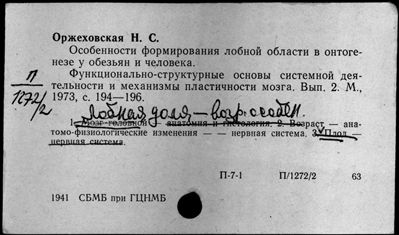 Оржеховская Н. С.
Особенности формирования лобной области в онтоге-
незе у обезьян и человека.
Функционально-структурные основы системной дея-
тельности и механизмы пластичности мозга. Вып. 2. М.,
1973, с. 194—196.
П
1272/2
Лобная доля — возр. особен.
1. Мозг головной — анатомия и гистология. 2. Возраст — ана-
томо-физиологические изменения — — нервная система. 3. Плод —
нервная система.
П-7-1 П/1272/2 63
1941 СБМБ при ГЦНМБ